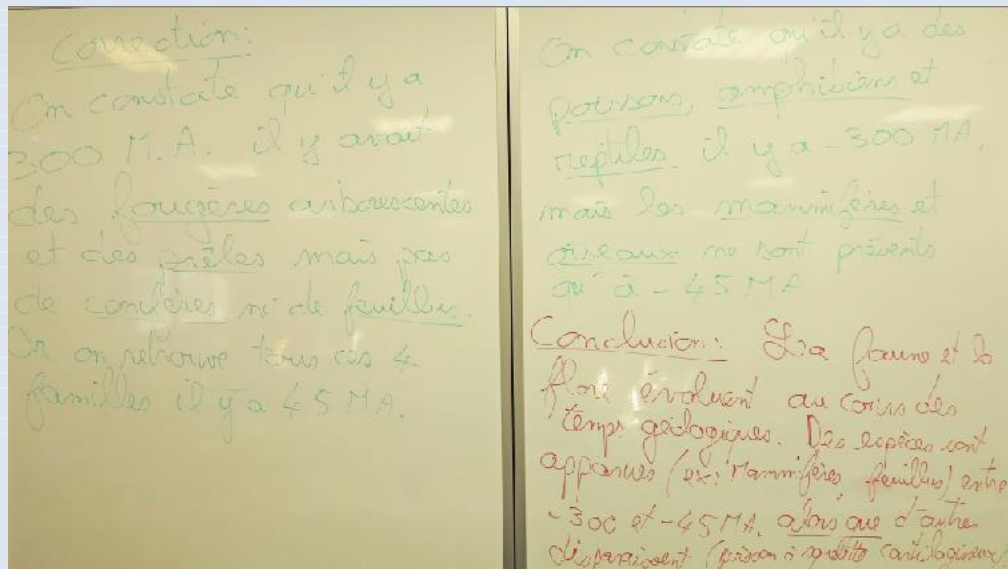 Correction:
On constate qu'il y a
300 M.A. il y avait
des fougères arborescentes
et des prêles mais pas
de conifères ni de feuillus.
Or on retrouve tous ces 4
familles il y a 45 MA.
On constate qu'il y a des
poissons, amphibiens et
reptiles il y a -300 MA.
mais les mammifères et
oiseaux ne sont présents
qu'à -45 MA
Conclusion: La faune et la
flore évoluent au cours des
temps géologiques. Des espèces sont
apparues (ex: Mammifères, feuillus) entre
-300 et -45 MA. alors que d'autres
disparaissent (poisson à squelette cartilagineux)